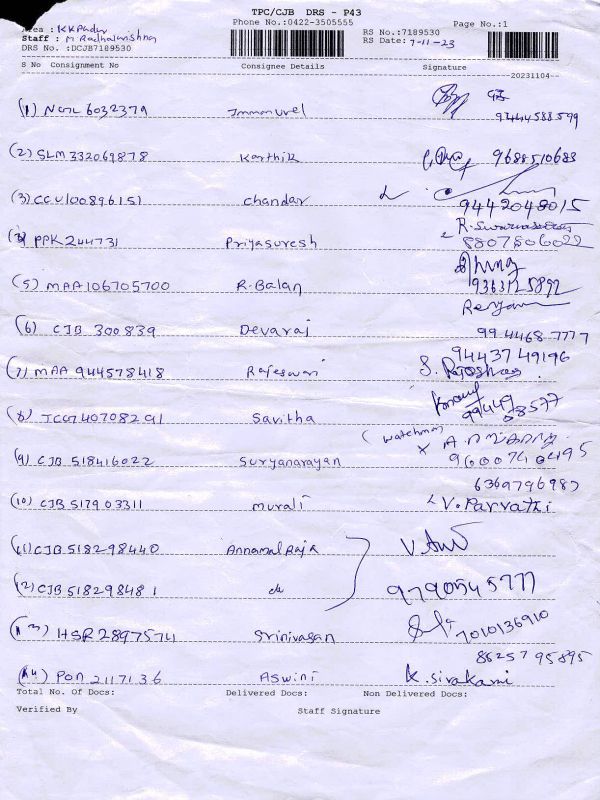 TPC/CJB DRS - P43
Phone No.:0422-3505555
Page No.:1
Area : KKPudur
Staff : M Radhakrishna
DRS No. :DCJB7189530
RS No.:7189530
RS Date: 7-11-23
S No Consignment No Consignee Details Signature
20231104
(1) Immanuel
9444588599
(2) SLM 332069878 Karthik 9688510683
(3) CCU100896151 chandar
9442048015
PPK 244731 Priyasuresh
8807806022
(5) MAA106705700 R. Balan
9363125892
(6) CJB 300839 Devaraj
9944687777
9443749196
(7) MAA 944578418 Rajeswari
(8) Savitha
(watchman)
(9) CJB 518416022 Suryanarayan
(10) CJB 517903311 murali
V. Parvathi
(11) CJB 518298440
(12) CJB 518298481 do
9790545777
(13) HSR 28975741 Srinivasan
7010136910
8625795895
(14) PON 2117136 Aswini K. Sivakami
Total No. Of Docs: Delivered Docs: Non Delivered Docs:
Verified By Staff Signature